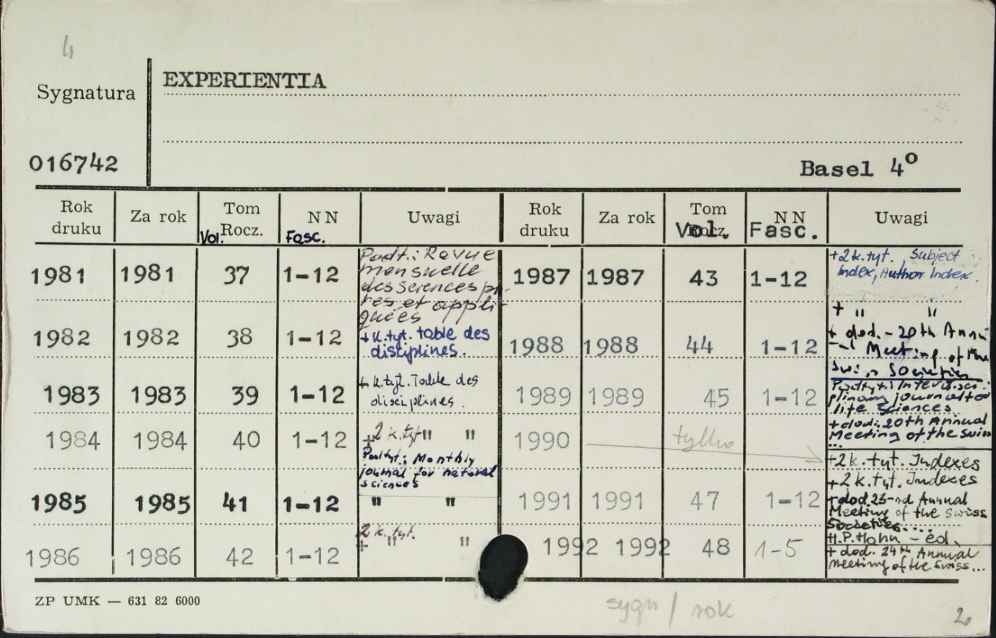 4
Sygnatura
EXPERIENTIA
016742
Basel 4º
Rok druku Za rok Tom Rocz. Vol. NN Fasc. Uwagi Rok druku Za rok Tom Rocz. Vol. NN Fasc. Uwagi
1981 1981 37 1-12
Podt.: Revue
mensuelle
des sciences pu-
res et appli-
quées
1987 1987 43 1-12
+2 k.tyt. Subject
Index, Author Index.
1982 1982 38 1-12
+k.tyt. Table des
disciplines.
1988 1988 44 1-12
+ " "
+ dod. - 20th Annu-
al Meeting of the
Swiss Societies
1983 1983 39 1-12
+ k.tyt. Table des
disciplines.
1989 1989 45 1-12
Podtyt: Interdisci-
plinary journal for
life Sciences.
+dod: 20th Annual
Meeting of the Swiss
...
1984 1984 40 1-12
+2 k.tyt " "
Podtyt.: Monthly
journal for natural
sciences
1990 tylko
+2 k.tyt. Indexes
1985 1985 41 1-12 " "
1991 1991 47 1-12
+2 k.tyt. Indexes
+dod 23-rd Annual
Meeting of the Swiss
Societies....
1986 1986 42 1-12
2 k.tyt.
+ " "
1992 1992 48 1-5
H.P. Hahn - ed.
+ dod. 24th Annual
Meeting of the Swiss...
ZP UMK — 631 82 6000
sygn / rok
2.